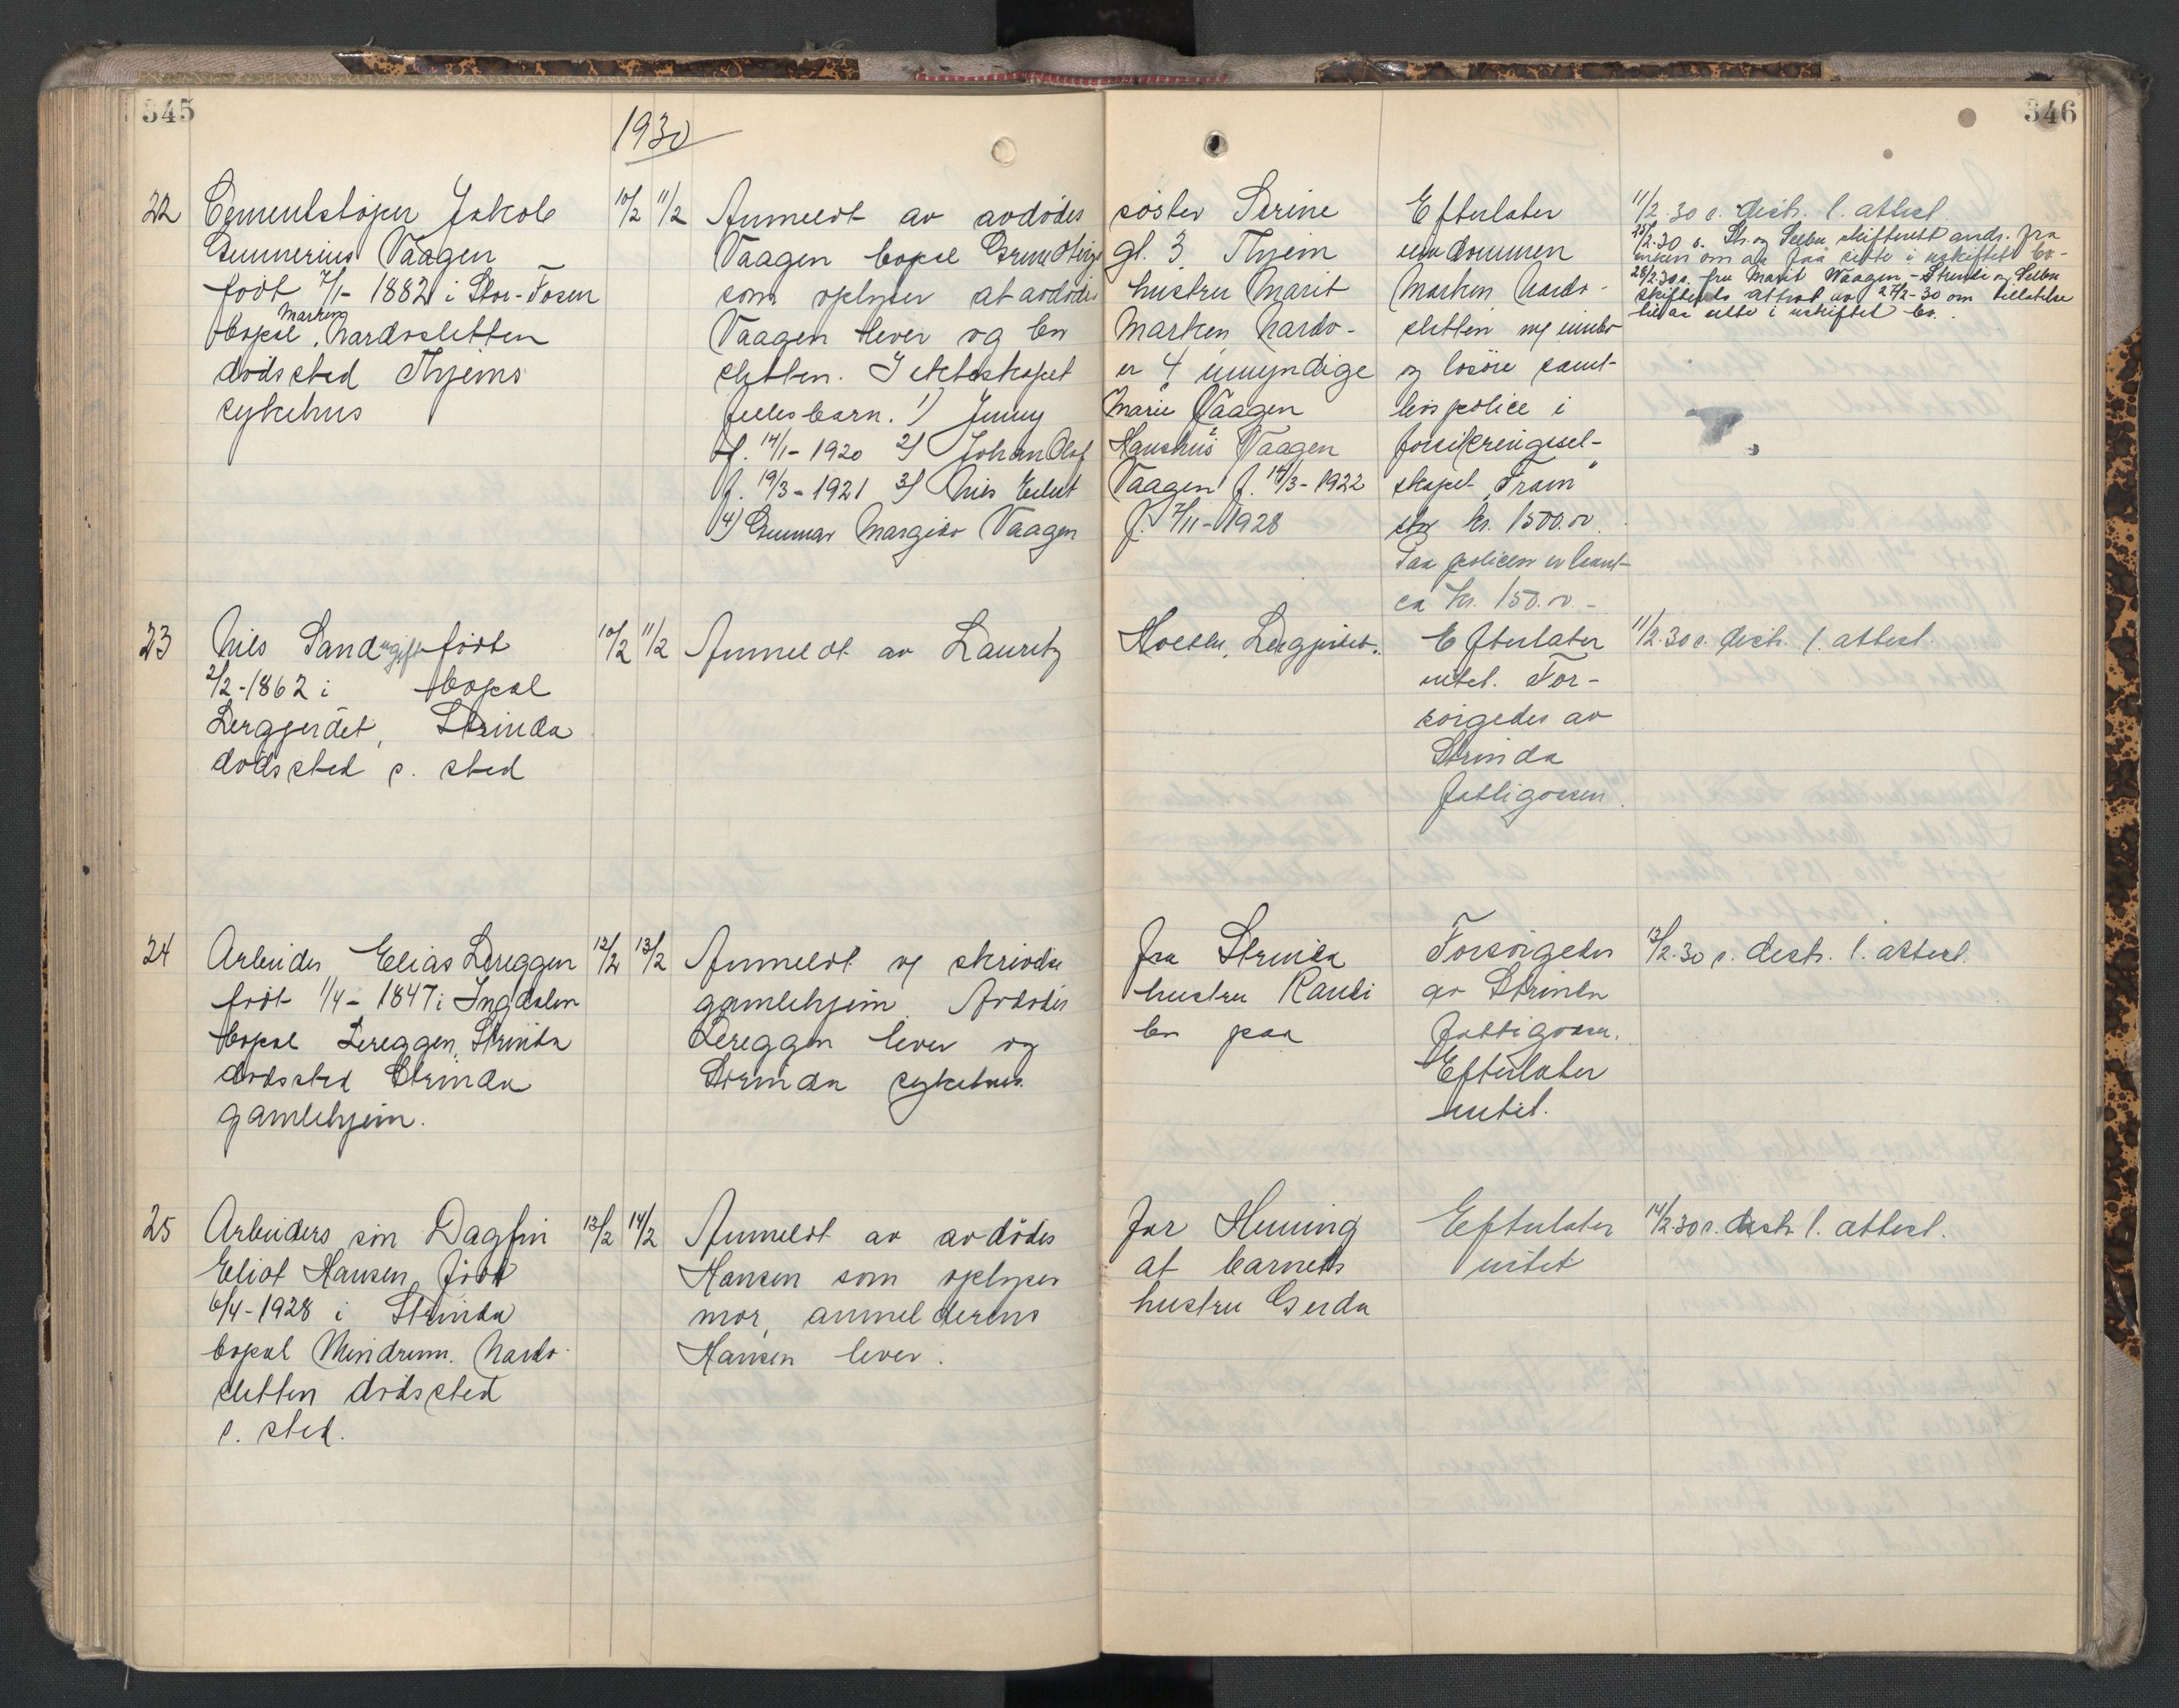 345
346
1930
22 Cementstøper Jakob 10/2 11/2 Anmeldt av avdødes søster Serine Efterlater 11/2.30 s. distr. l. attest.
Gunnerius Vaagen Vaagen bopæl gl. 3 Thjem eiendommen 15/2.30 s. Str. og Selbu skifterett andr. fra
født 7/1-1882 i Stor-Fosen som oplyser at avdødes hustru Marit Marken Nardo- enken om at faa sitte i uskiftet bo-
bopæl Marken, Nardosletten Vaagen lever og bor Marken Nardo- sletten m/ innbo 28/2.30 s. fru Marit Vaagen - Strinda og Selbu
dødssted Thjems sletten. I ekteskapet er 4 umyndige og løsøre samt skifteretts attest av 27/2-30 om tillatelse
sykehus fellesbarn. 1) Jenny Marie Vaagen livspolice i til at sitte i uskiftet bo.
f. 14/1-1920 2) Johan Olaf Vaagen forsikringssel-
f. 19/3-1921 3) Nils Eilert Vaagen f. 14/3-1922 skapet "Fram"
4) Gunnar Margido Vaagen f. 7/11-1928 stor kr. 1500.00.
Paa policen er laant
ca kr. 150.00.-
23 Nils Sand ugift født 10/2 11/2 Anmeldt av Lauritz Moetter, Leegjerdet. Efterlater 11/2.30 s. distr. l. attest.
2/2-1862 i bopæl intet. For-
Lergjerdet, Strinda sørgedes av
dødssted s. sted Strinda
fattigvesen.
24 Arbeider Elias Lereggen 12/2 13/2 Anmeldt og skriftlig fra Strinda Forsørgedes 13/2.30 s. distr. l. attest.
født 1/4-1847 i Ingdalen gamlehjem. Avdødes hustru Randi av Strinda
bopæl Lereggen, Strinda Lereggen lever og bor paa fattigvesen.
dødssted Strinda Strinda sykehus. Efterlater
gamlehjem. intet.
25 Arbeiders søn Dagfin 13/2 14/2 Anmeldt av avdødes far Henning Efterlater 14/2.30 s. distr. l. attest.
Eliot Hansen, født Hansen som oplyser at barnets intet
6/4-1928 i Strinda mor, anmelderens hustru Gerda
bopæl Mindrum. Nardo- Hansen lever.
sletten dødssted
s. sted.